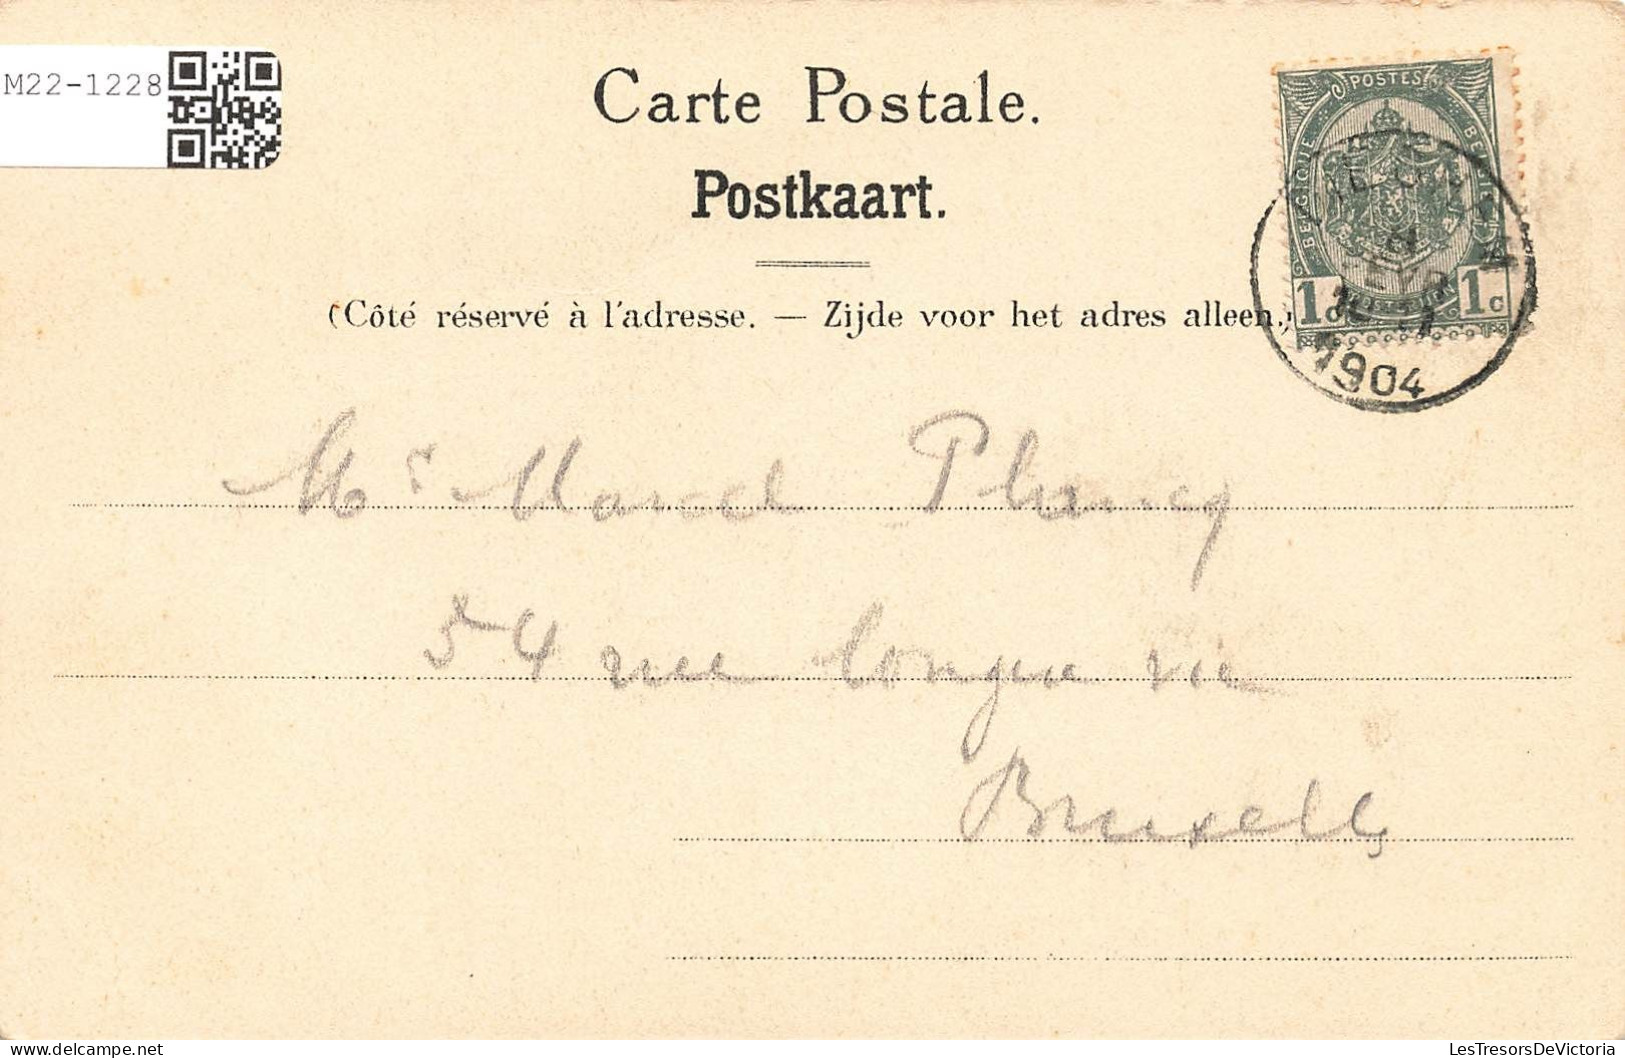 M22-1228
Carte Postale.
Postkaart.
(Côté réservé à l'adresse. — Zijde voor het adres alleen.)
POSTES
BELGIQUE BELGIË
1c 1c
1904
Mr Marcel
54 rue longue vie
Bruxelles
LesTresorsDeVictoria
delcampe.net